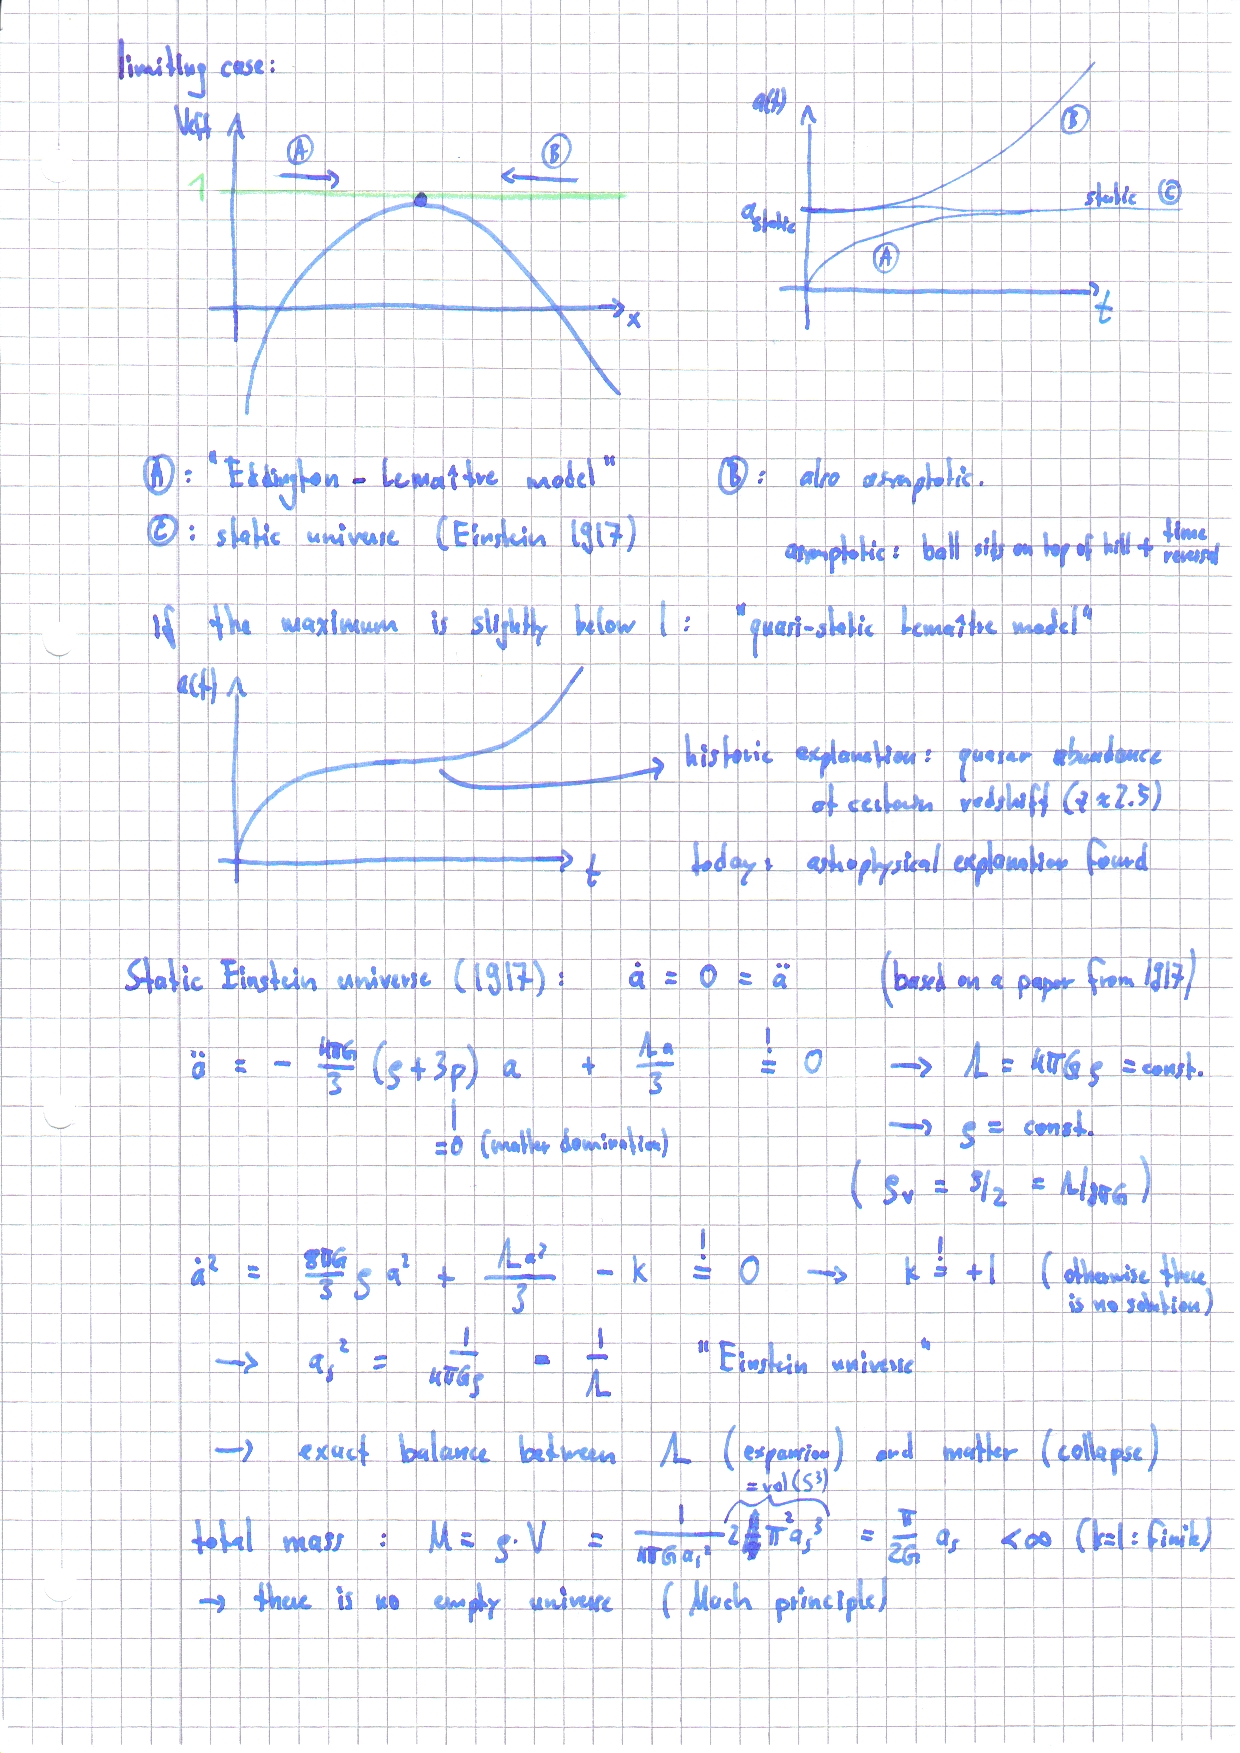 limiting case:
Veff
1
A
B
x
a(t)
B
static C
a_static
A
t
A: "Eddington - Lemaître model" B: also asymptotic.
C: static universe (Einstein 1917)
asymptotic: ball sits on top of hill + time reversal
If the maximum is slightly below 1: "quasi-static Lemaître model"
a(t)
t
historic explanation: quasar abundance
of certain redshift (z ≈ 2.5)
today: astrophysical explanation found
Static Einstein universe (1917): ȧ = 0 = ä (based on a paper from 1917)
ä = - 4πG/3 (ρ + 3p) a + Λa/3 =! 0 → Λ = 4πGρ = const.
=0 (matter domination) → ρ = const.
(ρ_v = ρ/2 = Λ/8πG)
ȧ² = 8πG/3 ρ a² + Λa²/3 - k =! 0 → k =! +1 (otherwise there
is no solution)
→ a_s² = 1/4πGρ = 1/Λ "Einstein universe"
→ exact balance between Λ (expansion) and matter (collapse)
= vol(S³)
total mass: M = ρ·V = 1/4πG a_s² 2 π² a_s³ = π/2G a_s < ∞ (k=1: finite)
→ there is no empty universe (Mach principle)